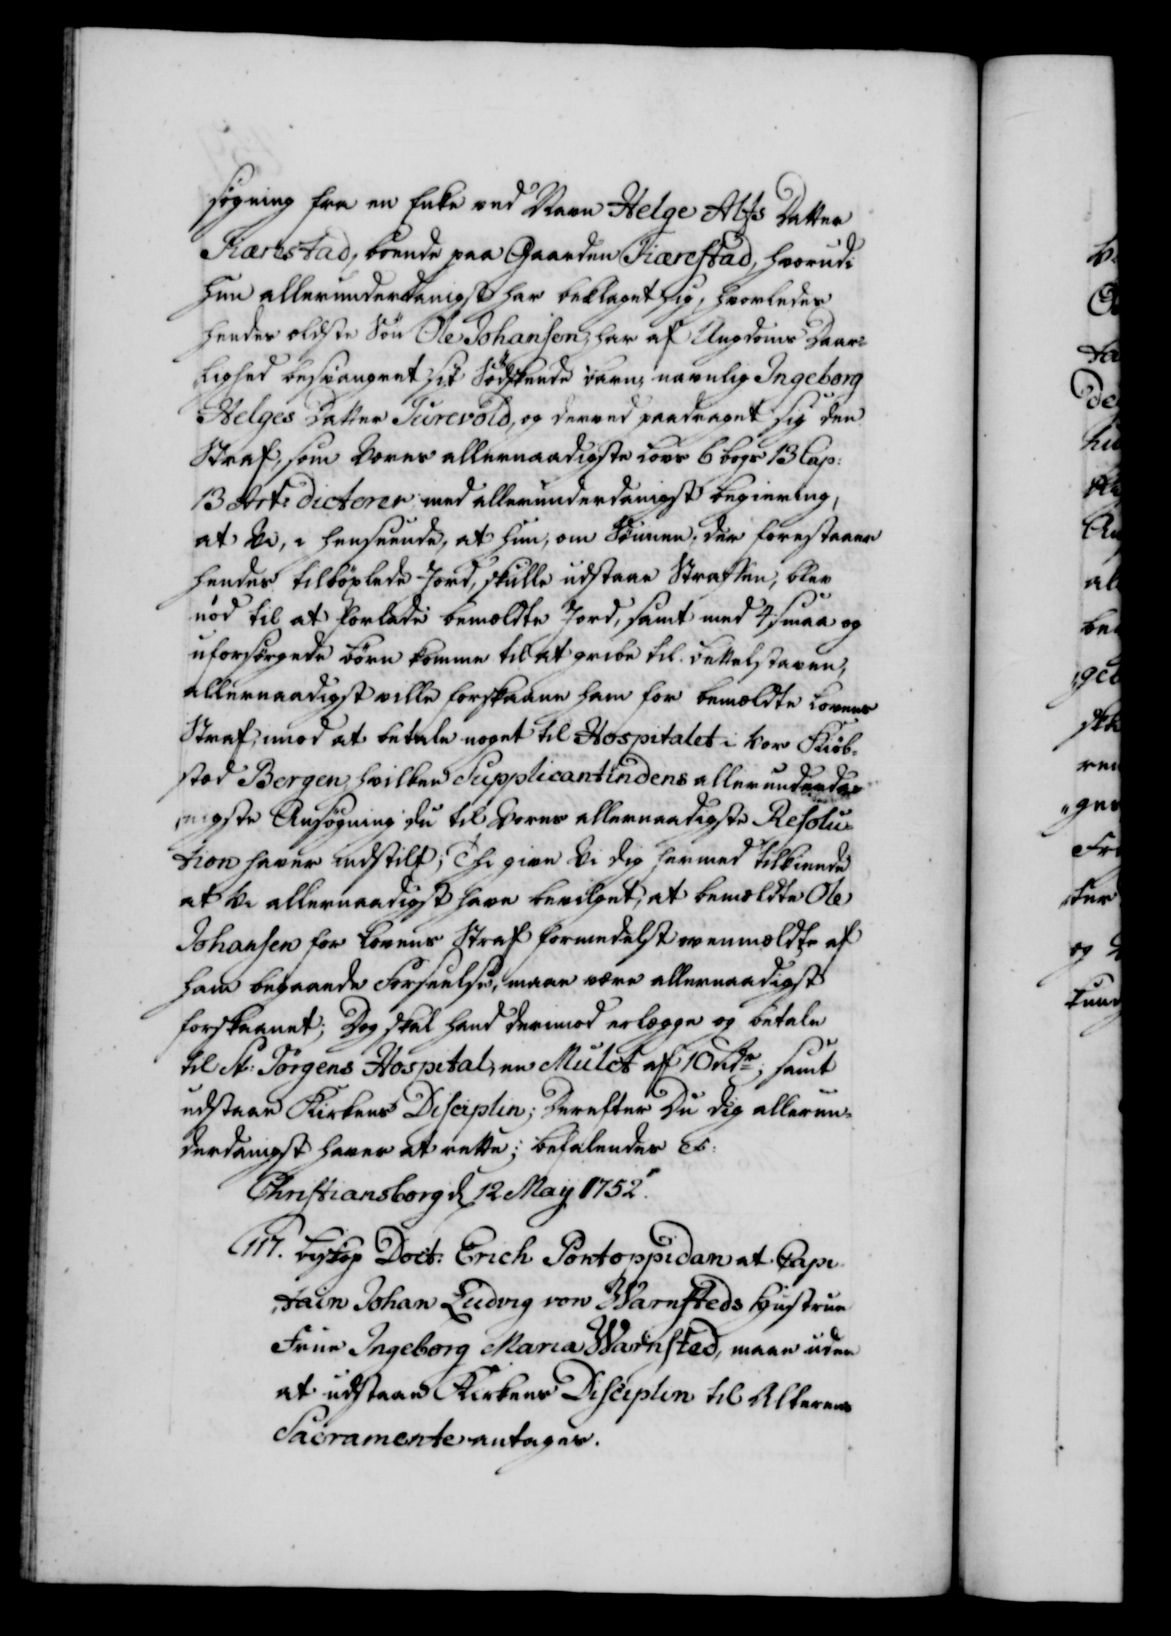 søgning fra en Enke ved Navn Helge Alfs Datter
Kiærestad, boende paa Gaarden Kiærestad, hvorudi
hun allerunderdanigst har beklaget sig, hvorledes
hendes ældste Søn Ole Johansen, har af Ungdoms Daar-
lighed besvangret sit Sødskende barn, navnlig Ingeborg
Helges Datter Turevold, og derved paadraget sig den
Straf, som Vores allernaadigste Lovs 6 bogs 13 Cap:
13 Art: dicterer; med allerunderdanigst begiering,
at Vi, i henseende, at hun, om Sønnen, der forestaaer
hendes tilbøxlede Jord, skulle udstaae Straffen, blev
nød til at forlade bemældte Jord, samt med 4 smaa og
uforsørgede børn komme til at gribe til bettelstaven,
allernaadigst ville forskaane ham for bemældte Lovens
Straf, imod at betale noget til Hospitalet i Vor Kiøb-
stad Bergen, hvilken Supplicantindens allerunderda-
nigste Ansøgning du til Vores allernaadigste Resolu-
tion haver indstilt; Thi give Vi dig hermed tilkiende
at Vi allernaadigst have bevilget, at bemældte Ole
Johansen for Lovens Straf formedelst ovenmældte af
ham begaaende Forseelse, maae være allernaadigst
forskaanet; Dog skal hand derimod erlægge og betale
til St: Jørgens Hospital, en Mulct af 10 rdr; samt
udstaae Kirkens Disciplin; Derefter Du dig allerun-
derdanigst haver at rette; befalendes etc:
Christiansborg d. 12 May 1752.
117. Biskop Doct: Erich Pontoppidan at Capi-
tain Johan Ludvig von Warnsteds Hustrue
Frue Ingeborg Maria Warnsted, maae uden
at udstaae Kirkens Disciplin til Alterens
Sacramente antages.